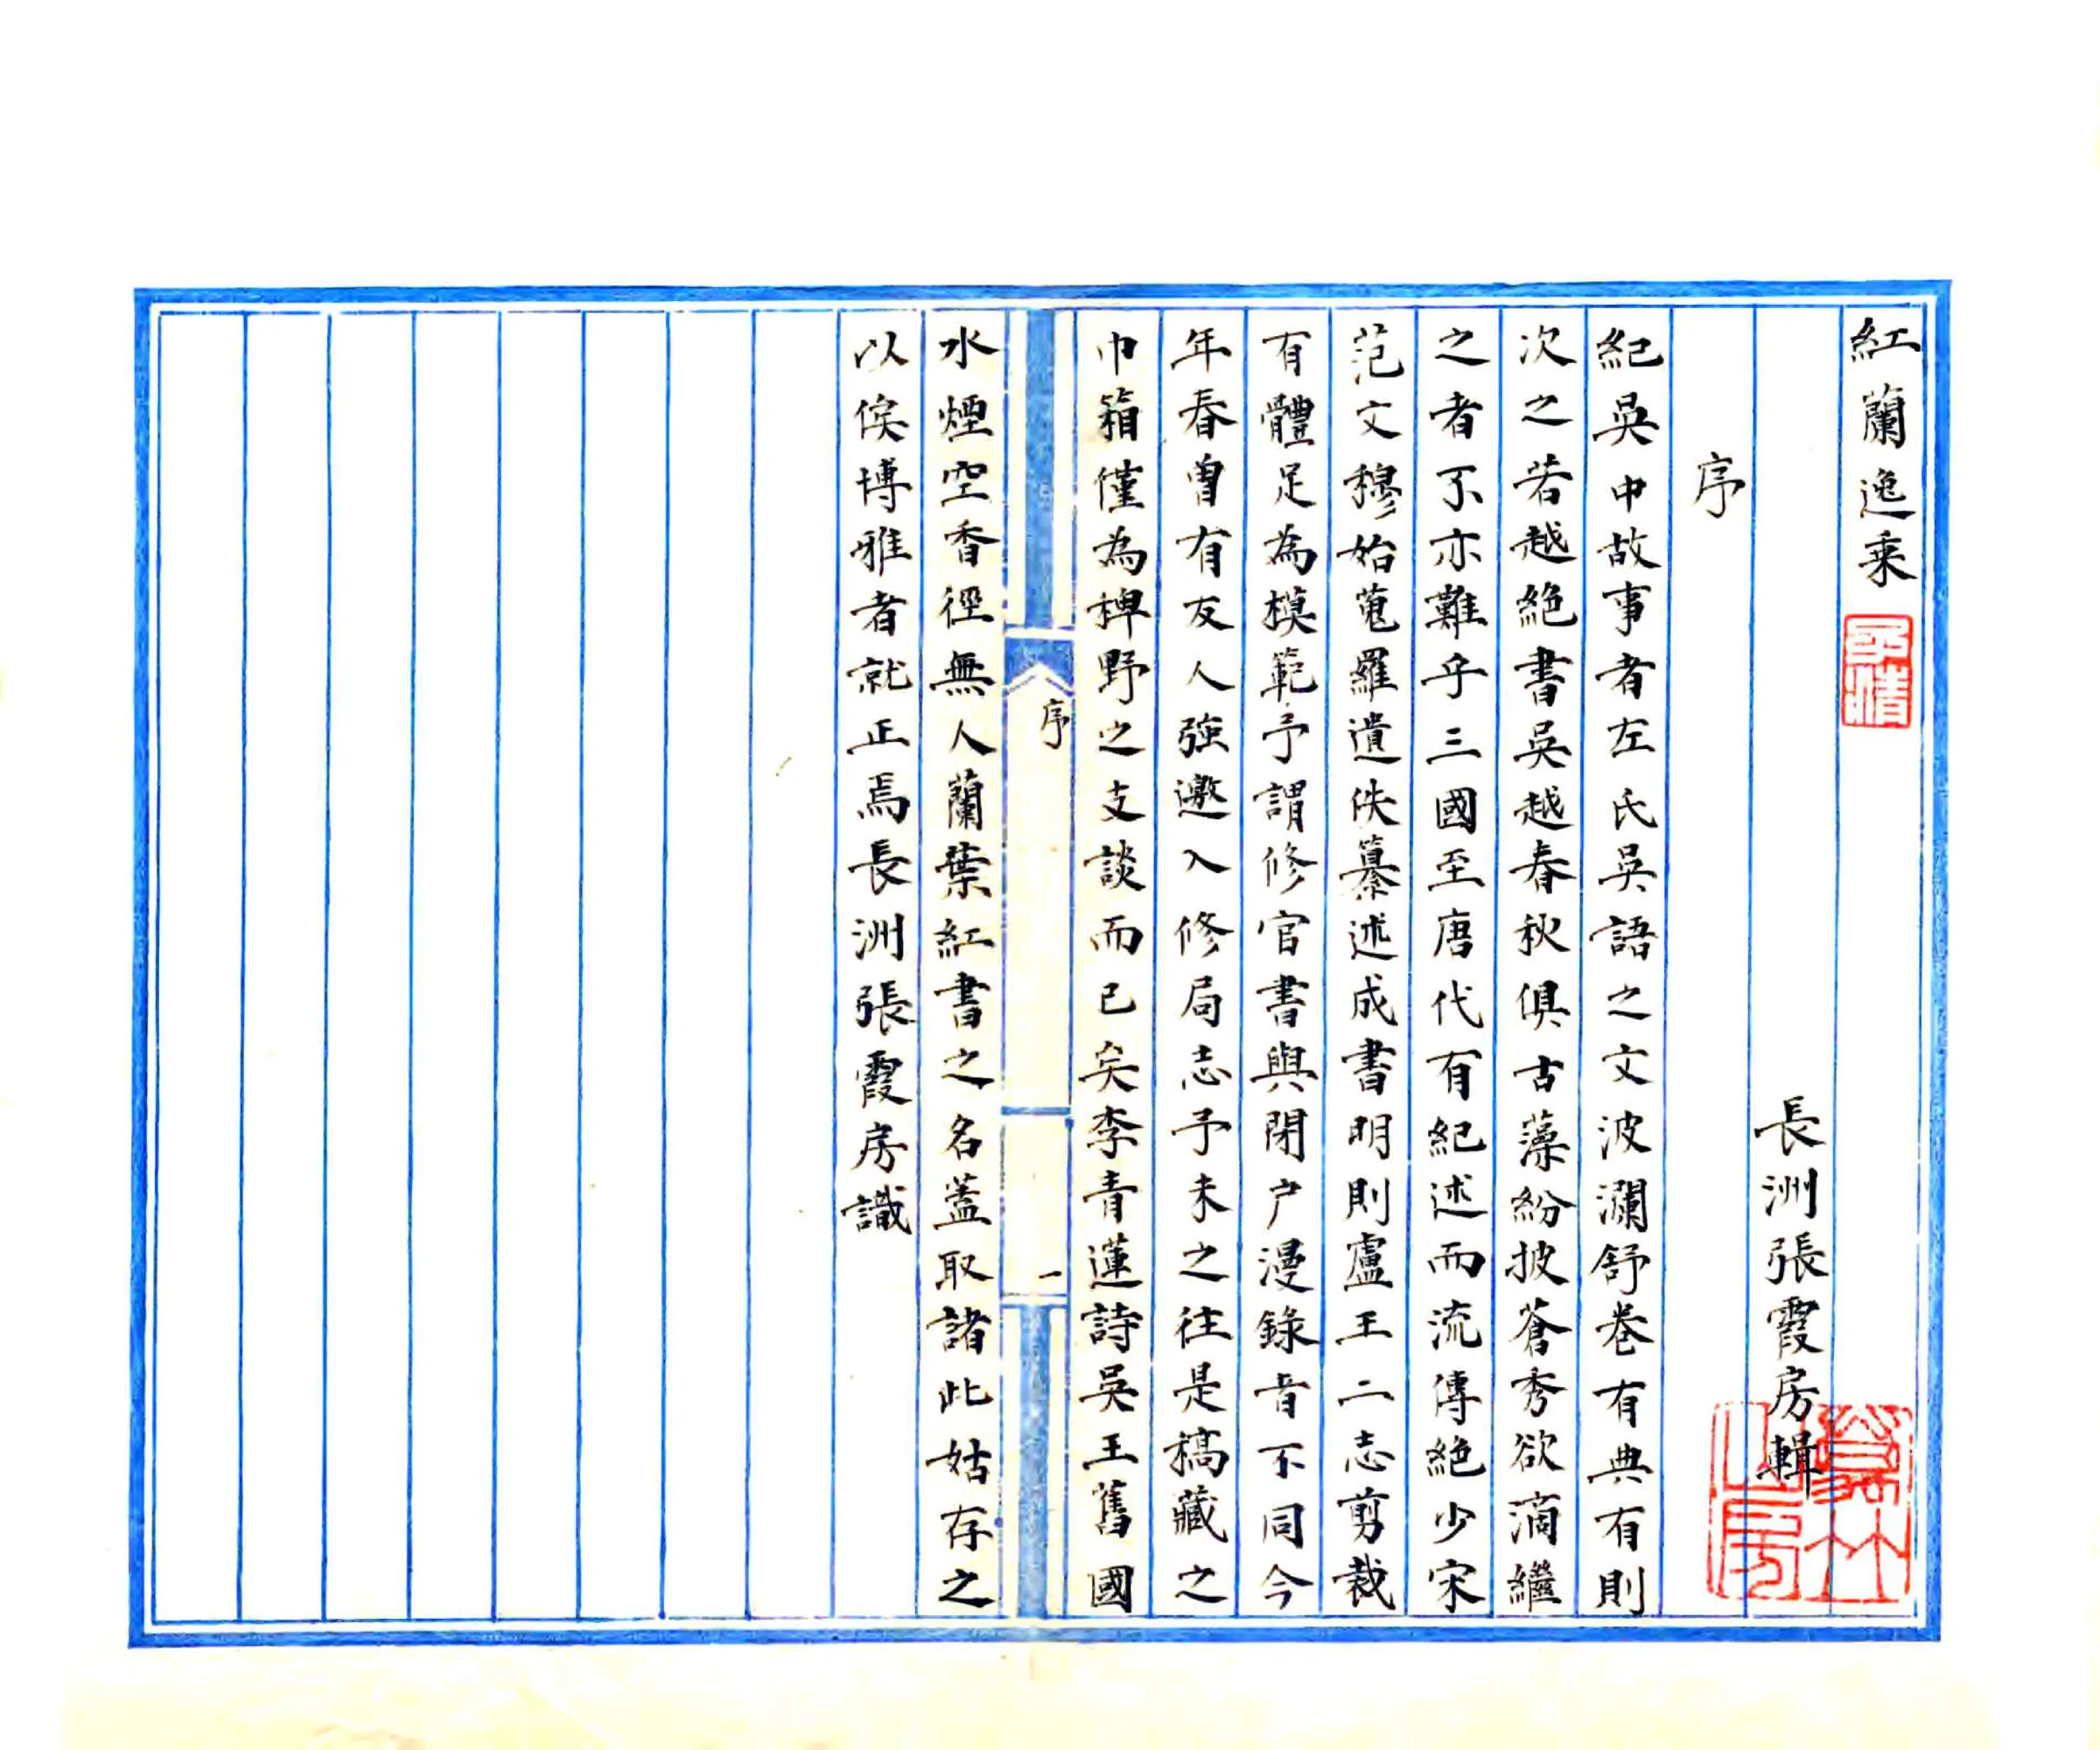 紅蘭逸乘
長洲張霞房輯
序
紀吳中故事者左氏吳語之文波瀾舒卷有典有則
次之若越絕書吳越春秋俱古藻紛披蒼秀欲滴繼
之者不亦難乎三國至唐代有紀述而流傳絕少宋
范文穆始蒐羅遺佚纂述成書明則盧王二志剪裁
有體足為模範予謂修官書與閉户漫錄音不同今
年春曾有友人強邀入修局志予未之往是稿藏之
巾箱僅為稗野之支談而已矣李青蓮詩吳王舊國
序
一
水煙空香徑無人蘭葉紅書之名蓋取諸此姑存之
以俟博雅者就正焉長洲張霞房識